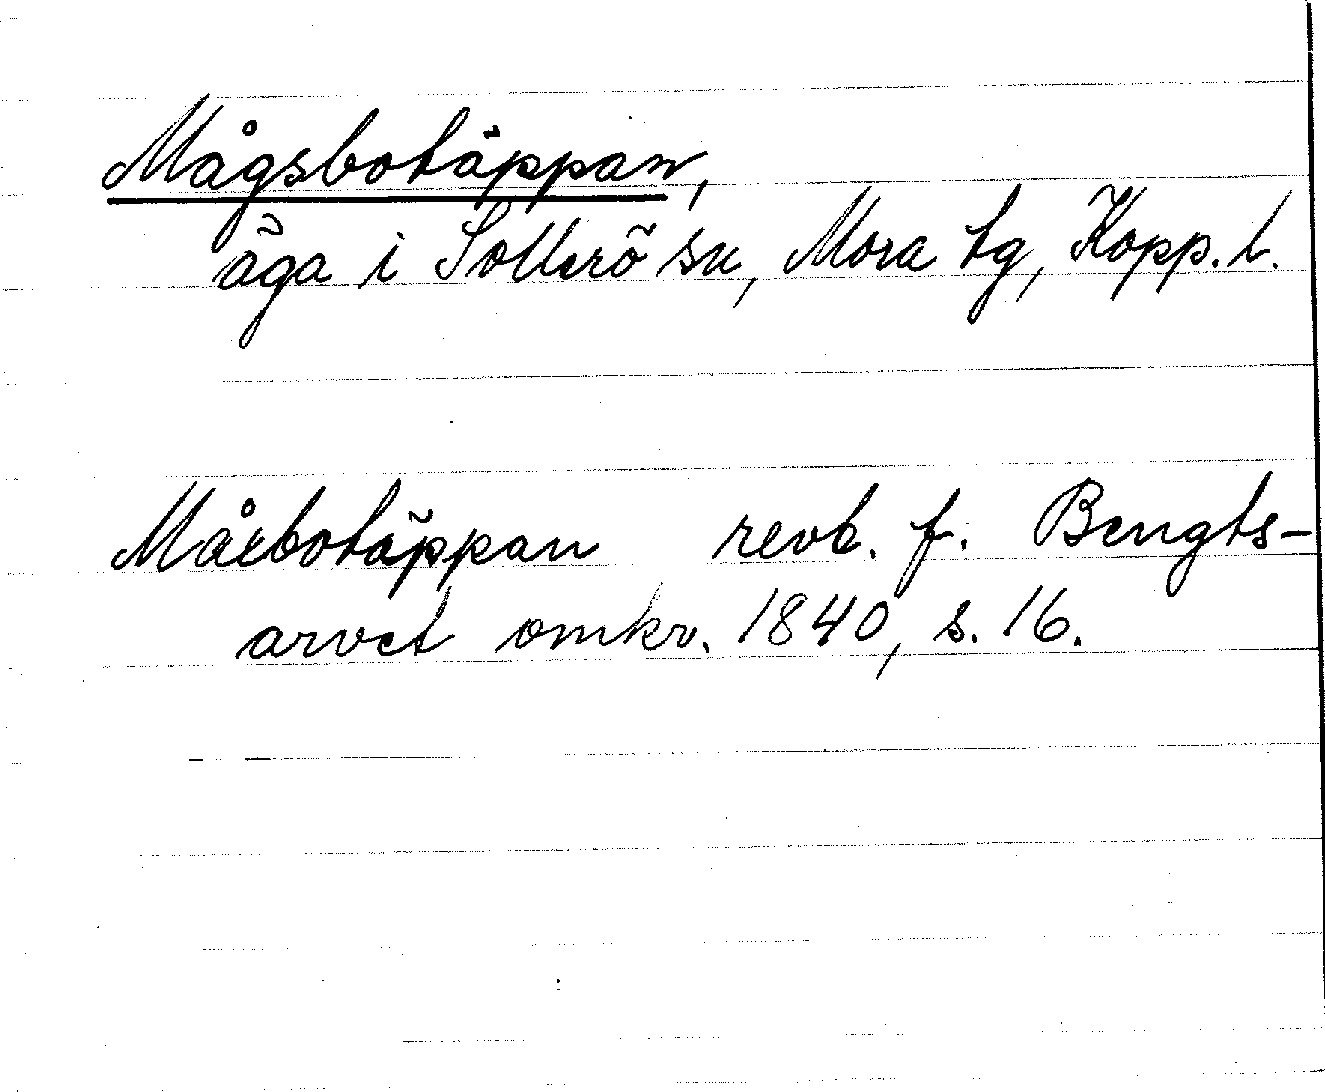 Mågsbotäppan,
äga i Sollerö sn, Mora tg, Kopp. l.
Måsbotäppan revb. f. Bengts-
arvet omkr. 1840, s. 16.